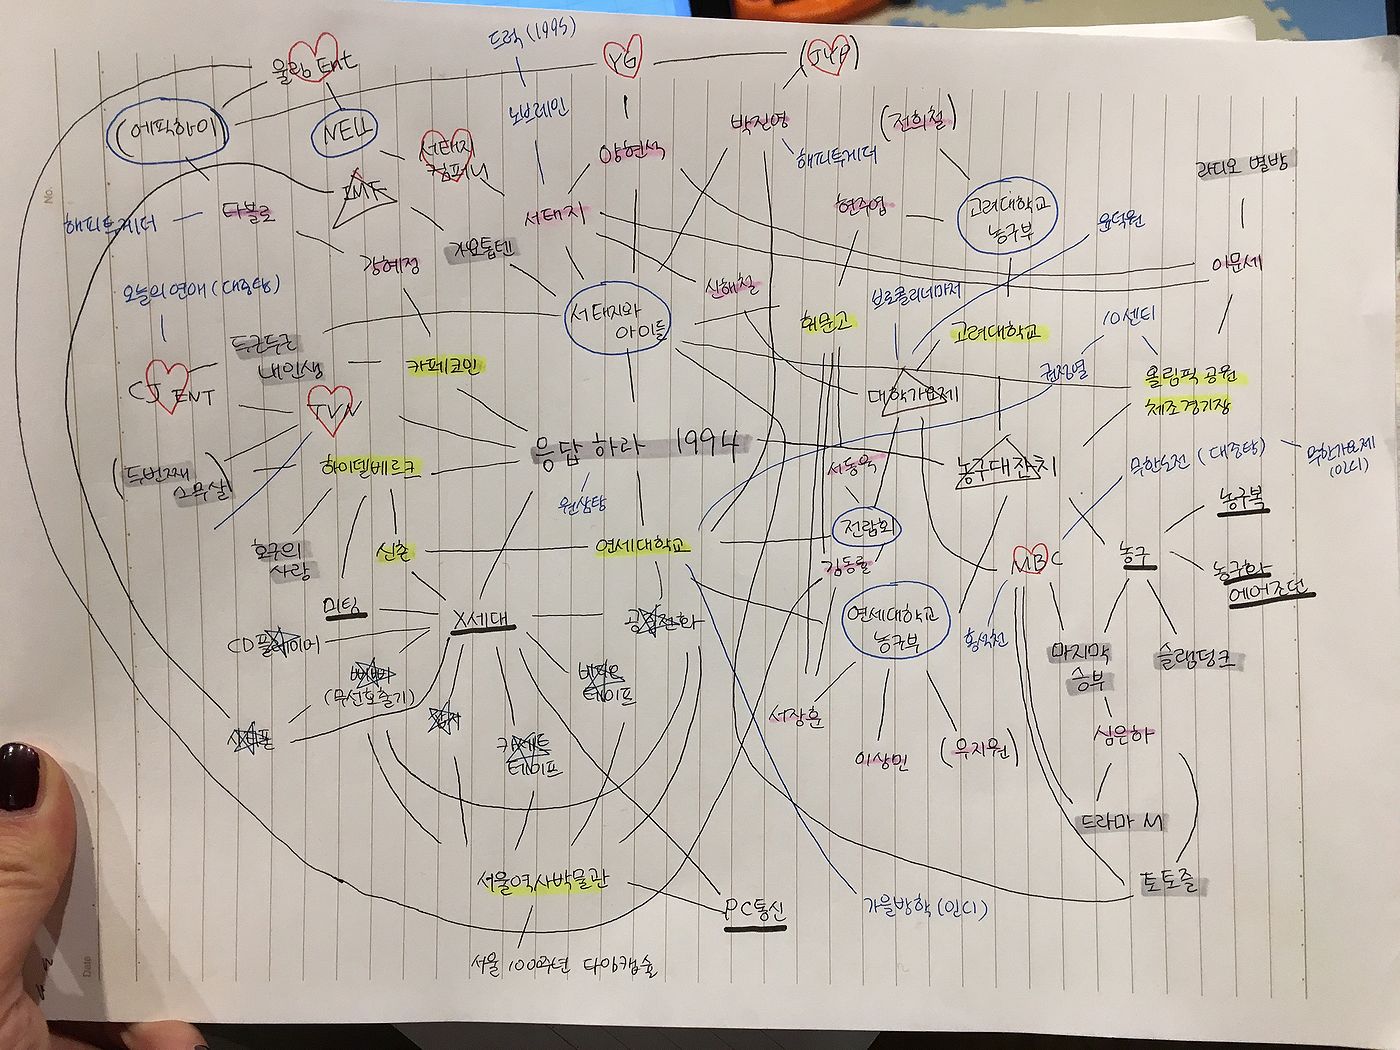 드럭(1995)
울림 Ent
YG
(JYP)
(에픽하이)
NELL
노브레인
박진영
(전희철)
서태지
컴퍼니
양현석
해피투게더
라디오 별밤
IMF
해피투게더
타블로
서태지
현주엽
고려대학교
농구부
윤덕원
가요톱텐
강혜정
이문세
오늘의 연애 (대중탕)
신해철
브로콜리너마저
서태지와
아이들
휘문고
고려대학교
10센티
두근두근
내인생
카페코인
권정열
올림픽공원
체조경기장
CJ ENT
TVN
대학가요제
응답하라 1994
(두번째
스무살)
하이델베르크
서동욱
농구대잔치
무한도전 (대중탕)
무한가요제
(인디)
원삼탕
농구복
호구의
사랑
신촌
연세대학교
전람회
김동률
MBC
농구
농구화
에어조던
미팅
X세대
공중전화
연세대학교
농구부
홍석천
CD플레이어
마지막
승부
슬램덩크
삐삐
(무선호출기)
비디오
테이프
서장훈
심은하
시티폰
카세트
테이프
이상민
(우지원)
드라마 M
서울역사박물관
토토즐
PC통신
가을방학(인디)
서울 1000주년 타임캡슐
No.
Date